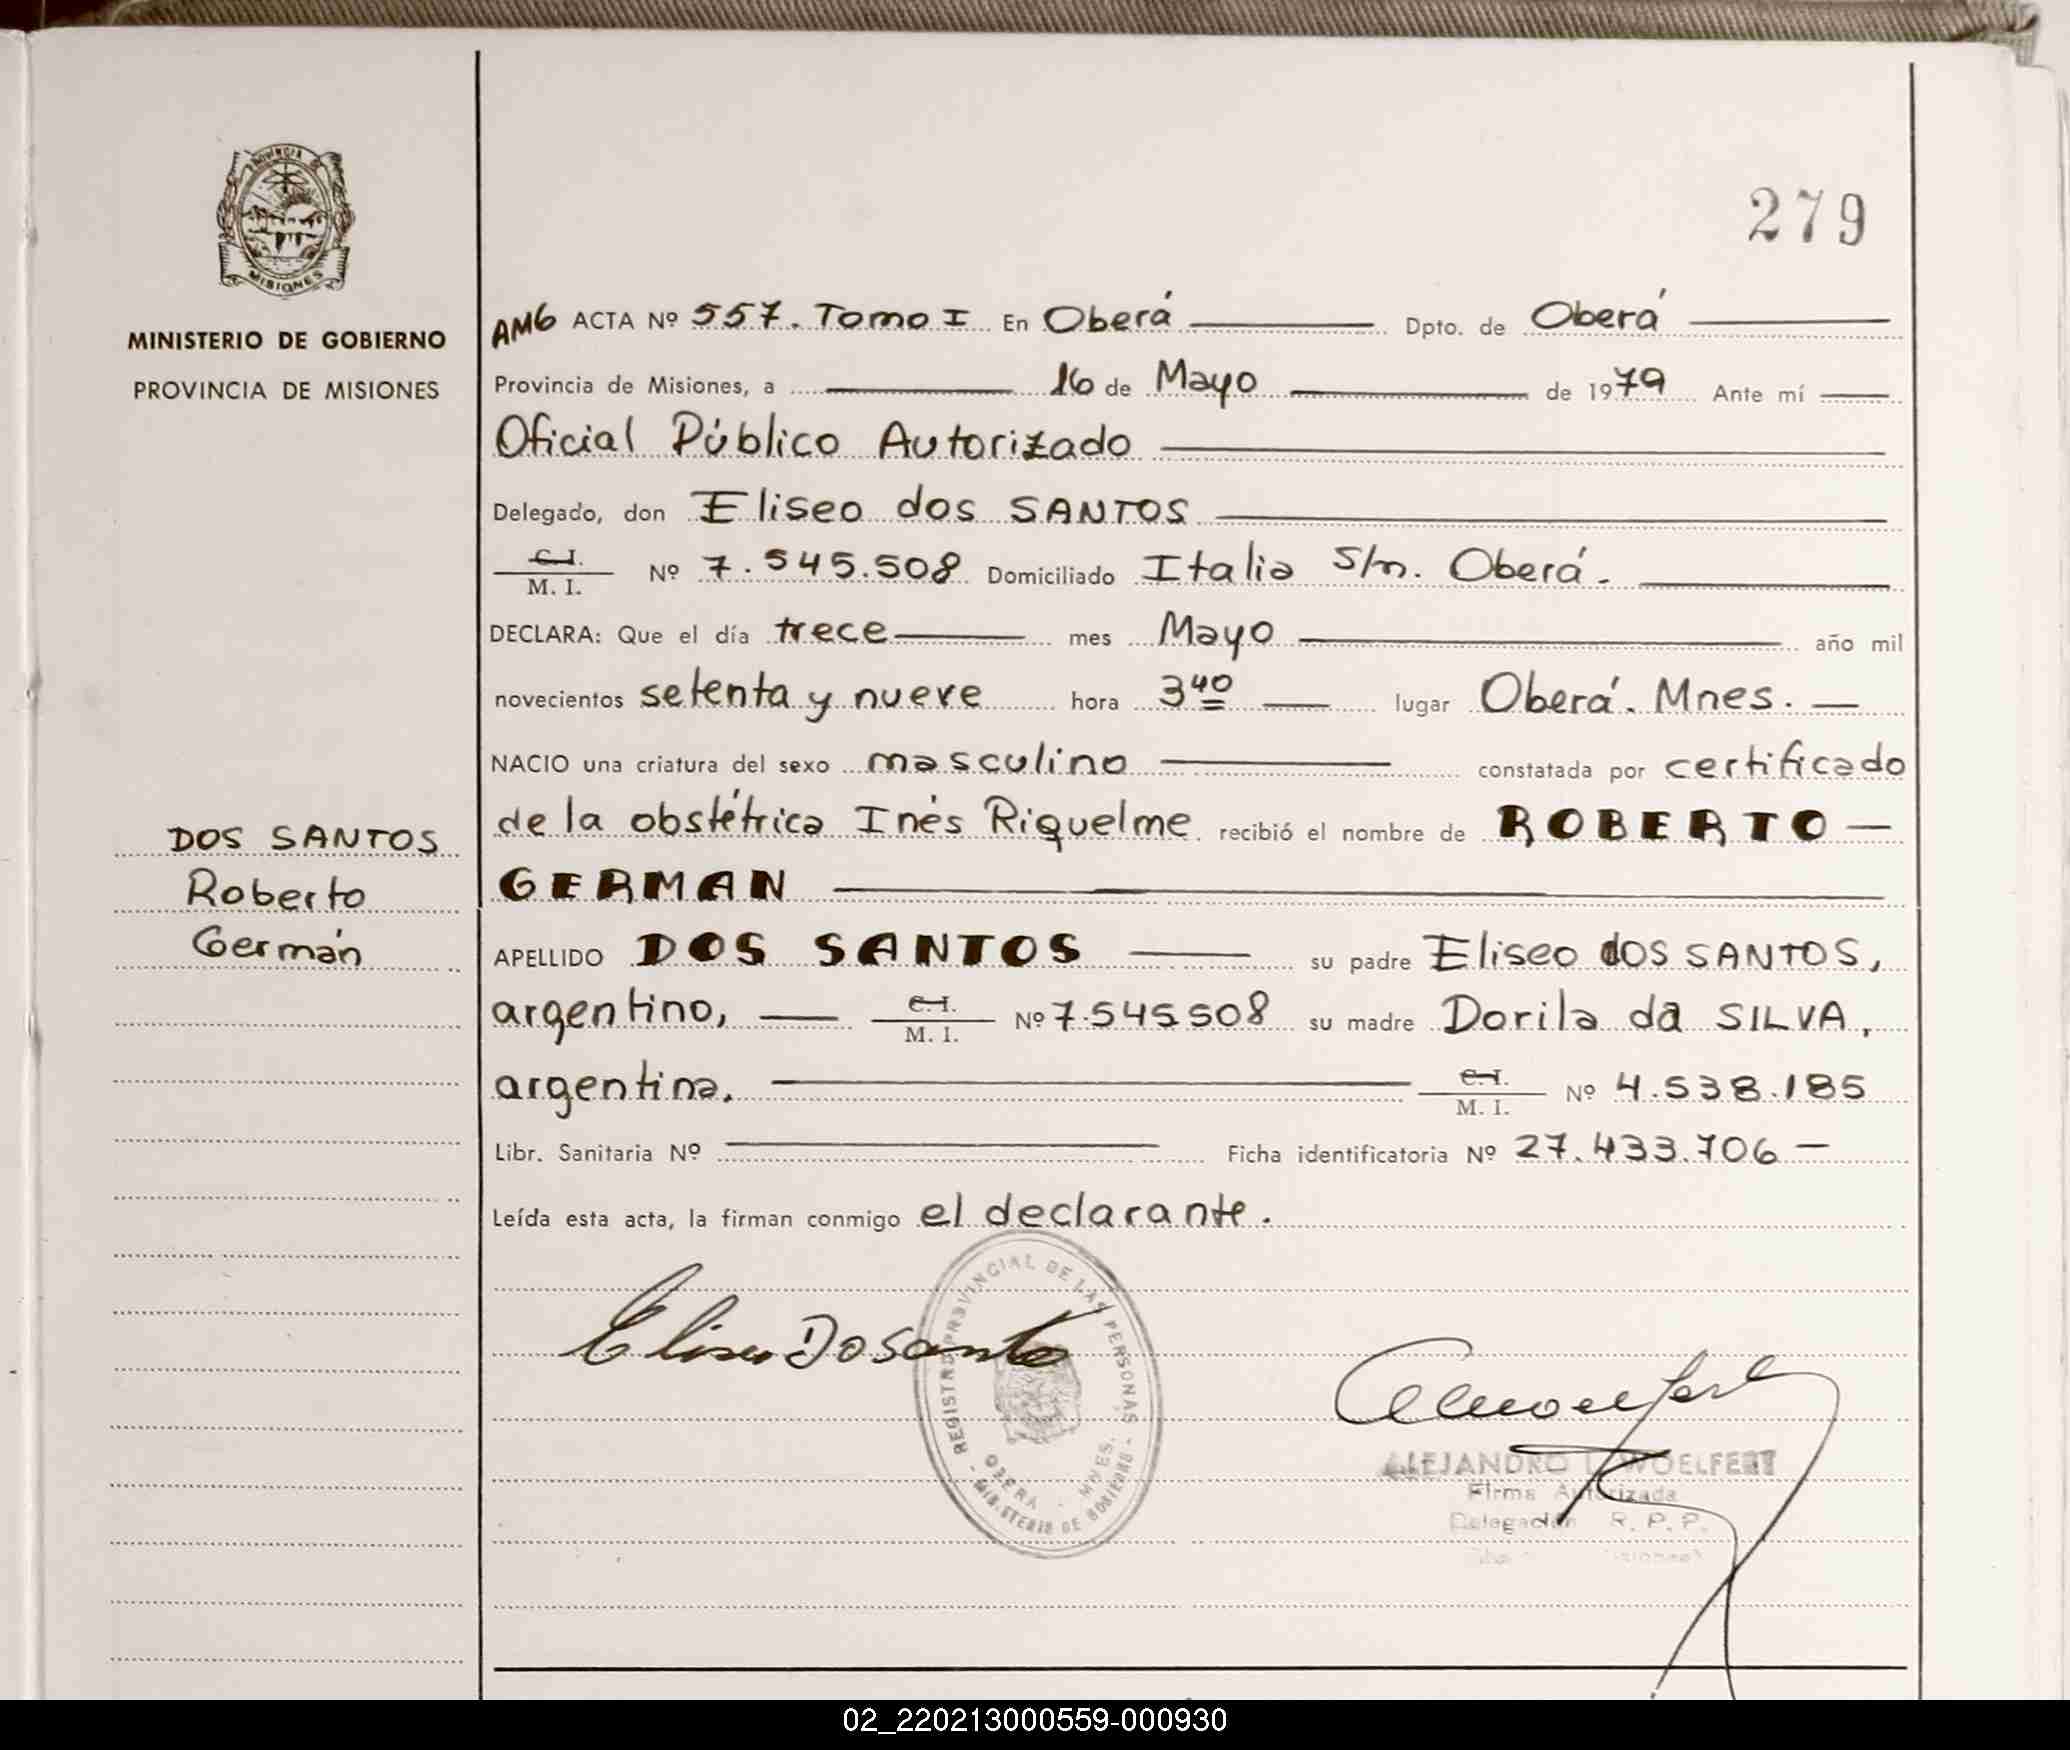 PROVINCIA DE
MISIONES
MINISTERIO DE GOBIERNO
PROVINCIA DE MISIONES
279
AMG ACTA Nº 557. Tomo I En Oberá Dpto. de Oberá
Provincia de Misiones, a 16 de Mayo de 1979 Ante mí
Oficial Público Autorizado
Delegado, don Eliseo dos SANTOS
C. I.
M. I. Nº 7.545.508 Domiciliado Italia s/n. Oberá.
DECLARA: Que el día trece mes Mayo año mil
novecientos setenta y nueve hora 3 40 lugar Oberá. Mnes.
NACIO una criatura del sexo masculino constatada por certificado
de la obstétrica Inés Riquelme recibió el nombre de ROBERTO
GERMAN
DOS SANTOS
Roberto
Germán
APELLIDO DOS SANTOS su padre Eliseo dos SANTOS,
argentino, C. I. M. I. Nº 7.545.508 su madre Dorila da SILVA,
argentina. C. I. M. I. Nº 4.538.185
Libr. Sanitaria Nº Ficha identificatoria Nº 27.433.706
Leída esta acta, la firman conmigo el declarante.
Eliseo Dosanto
REGISTRO PROVINCIAL DE LAS PERSONAS
OBERA - MNES.
MINISTERIO DE GOBIERNO
ALEJANDRO WOELFERT
Firma Autorizada
Delegación R. P. P.
02_220213000559-000930